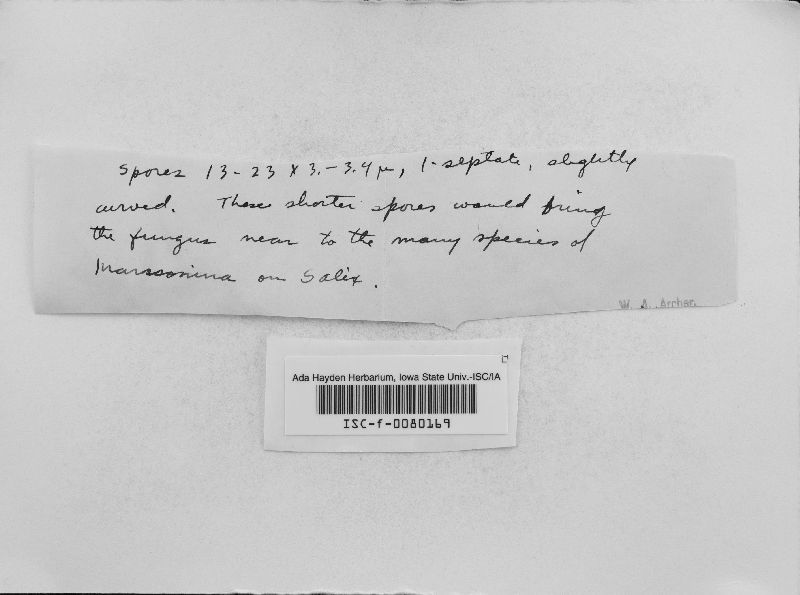 Spores 13-23 x 3.-3.4 µ, 1-septate, slightly
curved. These shorter spores would bring
the fungus near to the many species of
Marssonina on Salix.
W. A. Archer.
Ada Hayden Herbarium, Iowa State Univ.-ISC/IA
ISC-f-0080169